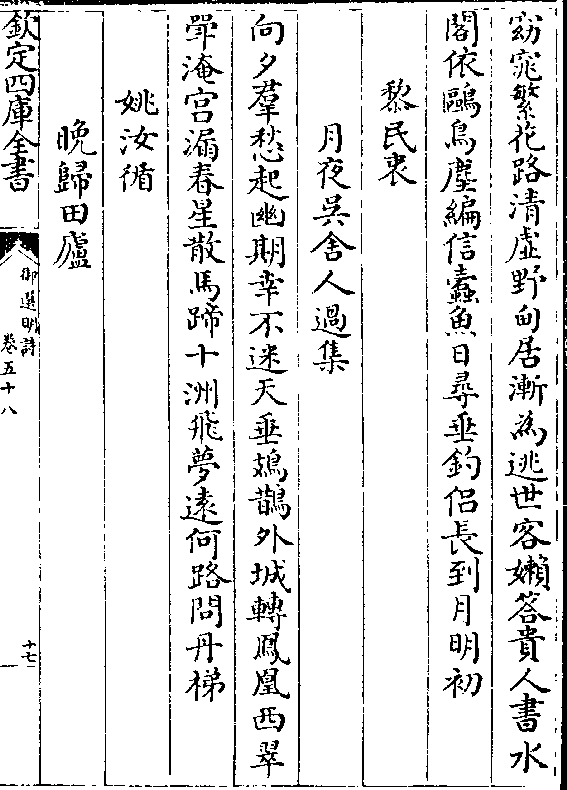 窈窕繁花路清虛野甸居漸為逃世客嬾答貴人書水
閣依鷗鳥塵編信蠹魚日尋垂釣侣長到月明初
黎民衷
月夜吳舍人過集
向夕羣愁起幽期幸不迷天垂鳷鵲外城轉鳳凰西翠
斝淹宫漏春星散馬蹄十洲飛夢遠何路問丹梯
姚汝循
晚歸田廬
欽定四庫全書
御選明詩
卷五十八
十七